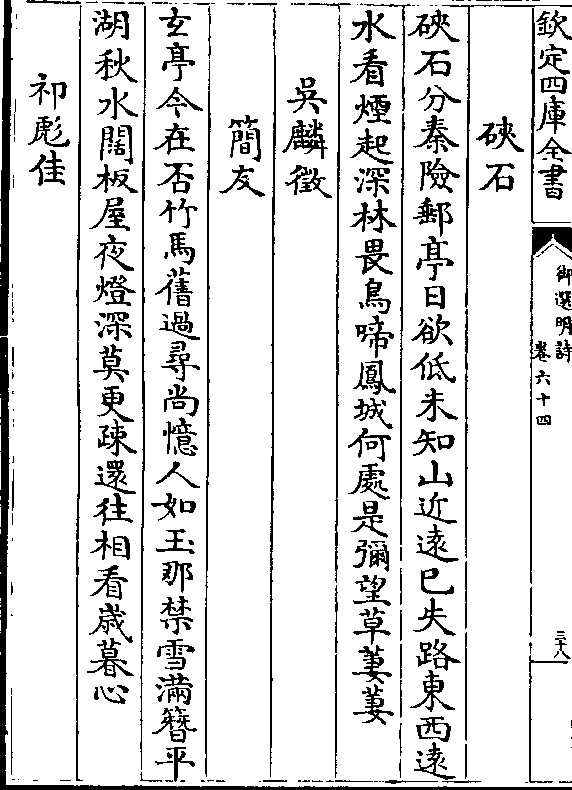 欽定四庫全書
御選明詩
卷六十四
三十八
硤石
硤石分秦險郵亭日欲低未知山近逺巳失路東西逺
水看煙起深林畏鳥啼鳳城何處是彌望草萋萋
吳麟徵
簡友
玄亭今在否竹馬舊過尋尚憶人如玉那禁雪滿簪平
湖秋水闊板屋夜燈深莫更疎還往相看歳暮心
祁彪佳